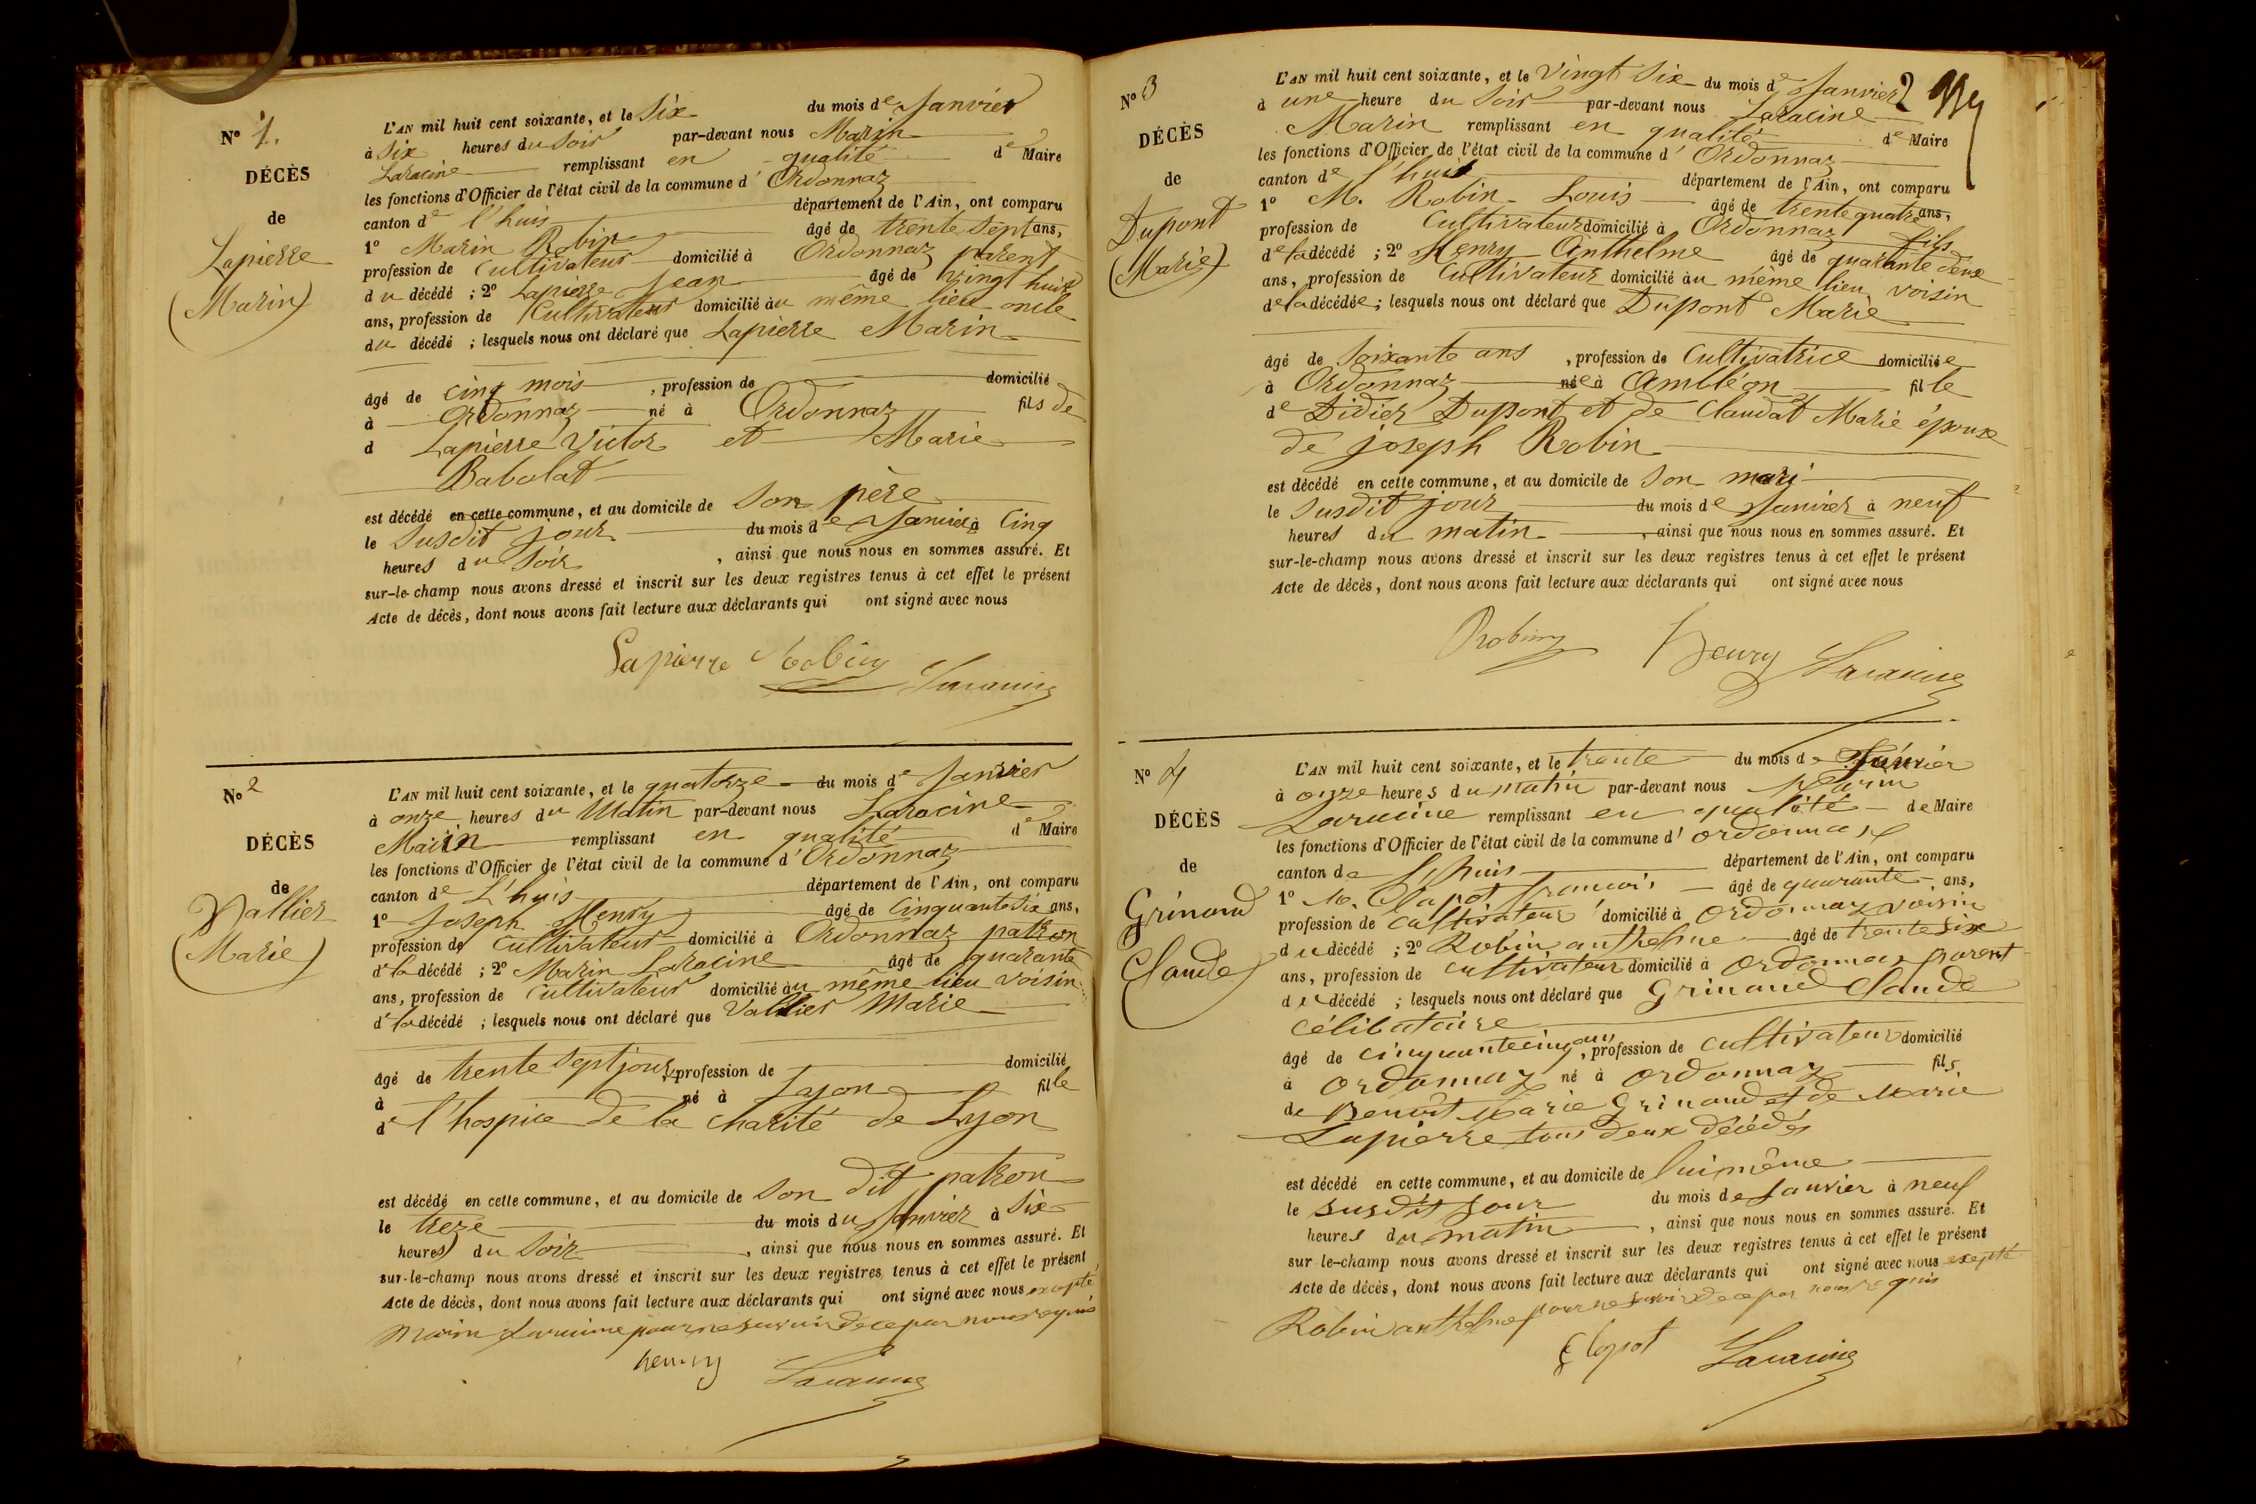 N° 1.
DÉCÈS
de
Lapierre
(Marin)
L'AN mil huit cent soixante, et le Six du mois de Janvier
à Six heures du Soir par-devant nous Marin
Laracine remplissant en qualité de Maire
les fonctions d'Officier de l'état civil de la commune d' Ordonnaz
canton de l'huis département de l'Ain, ont comparu
1° Marin Robin âgé de trente Sept ans,
profession de Cultivateur domicilié à Ordonnaz parent
du décédé ; 2° Lapierre Jean âgé de vingt huit
ans, profession de Cultivateur domicilié au même lieu oncle
du décédé ; lesquels nous ont déclaré que Lapierre Marin
âgé de cinq mois , profession de domicilié
à Ordonnaz né à Ordonnaz fils de
d Lapierre Victor et Marie
Babolat
est décédé en cette commune, et au domicile de Son père
le Susdit jour du mois de Janvier à Cinq
heures du Soir , ainsi que nous nous en sommes assuré. Et
sur-le-champ nous avons dressé et inscrit sur les deux registres tenus à cet effet le présent
Acte de décès, dont nous avons fait lecture aux déclarants qui ont signé avec nous
Lapierre Robin Laracine
N° 2
DÉCÈS
de
Vallier
(Marie)
L'AN mil huit cent soixante, et le quatorze du mois de Janvier
à onze heures du Matin par-devant nous Laracine
Marin remplissant en qualité de Maire
les fonctions d'Officier de l'état civil de la commune d' Ordonnaz
canton de L'huis département de l'Ain, ont comparu
1° Joseph Henry âgé de Cinquante Six ans,
profession de Cultivateur domicilié à Ordonnaz patron
de la décédé ; 2° Marin Laracine âgé de quarante
ans, profession de Cultivateur domicilié au même lieu voisin
de la décédé ; lesquels nous ont déclaré que Vallier Marie
âgé de trente Sept jours, profession de domicilié
à né à Layon fille
de l'hospice de la Charité de Lyon
est décédé en cette commune, et au domicile de Son dit patron
le treze du mois du Janvier à Six
heures du Soir , ainsi que nous nous en sommes assuré. Et
sur-le-champ nous avons dressé et inscrit sur les deux registres tenus à cet effet le présent
Acte de décès, dont nous avons fait lecture aux déclarants qui ont signé avec nous excepté
Marin Laracine pour ne savoir de ce par nous requis
henry Laracine
2
N° 3
DÉCÈS
de
Dupont
(Marie)
L'AN mil huit cent soixante, et le Vingt Six du mois de Janvier
à une heure du Soir par-devant nous Laracine
Marin remplissant en qualité de Maire
les fonctions d'Officier de l'état civil de la commune d' Ordonnaz
canton de l'huis département de l'Ain, ont comparu
1° M. Robin Louis âgé de trente quatre ans,
profession de Cultivateur domicilié à Ordonnaz fils
de la décédé ; 2° Henry Anthelme âgé de quarante deux
ans, profession de Cultivateur domicilié au même lieu voisin
de la décédée ; lesquels nous ont déclaré que Dupont Marie
âgé de Soixante ans , profession de Cultivatrice domiciliée
à Ordonnaz née à Ambléon fille
de Didier Dupont et de Claudat Marie épouse
de joseph Robin
est décédé en cette commune, et au domicile de Son mari
le Susdit jour du mois de Janvier à neuf
heures du matin , ainsi que nous nous en sommes assuré. Et
sur-le-champ nous avons dressé et inscrit sur les deux registres tenus à cet effet le présent
Acte de décès, dont nous avons fait lecture aux déclarants qui ont signé avec nous
Robin henry Laracine
N° 4
DÉCÈS
de
Grinand
(Claude)
L'AN mil huit cent soixante, et le trente du mois de Janvier
à onze heures du matin par-devant nous Marin
Laracine remplissant en qualité de Maire
les fonctions d'Officier de l'état civil de la commune d' ordonnaz
canton de l'huis département de l'Ain, ont comparu
1° M. Clapot francois âgé de quarante ans,
profession de cultivateur domicilié à ordonnaz voisin
du décédé ; 2° Robin anthelme âgé de trente six
ans, profession de cultivateur domicilié à ordonnaz parent
du décédé ; lesquels nous ont déclaré que Grinand Claude
célibataire
âgé de cinquante cinq ans, profession de cultivateur domicilié
à ordonnaz né à ordonnaz fils
de Benoît Marie Grinand et de Marie
Lapierre tous deux décédés
est décédé en cette commune, et au domicile de lui même
le susdit jour du mois de Janvier à neuf
heures du matin , ainsi que nous nous en sommes assuré. Et
sur le-champ nous avons dressé et inscrit sur les deux registres tenus à cet effet le présent
Acte de décès, dont nous avons fait lecture aux déclarants qui ont signé avec nous excepté
Robin anthelme pour ne savoir de ce par nous requis
Clapot Laracine